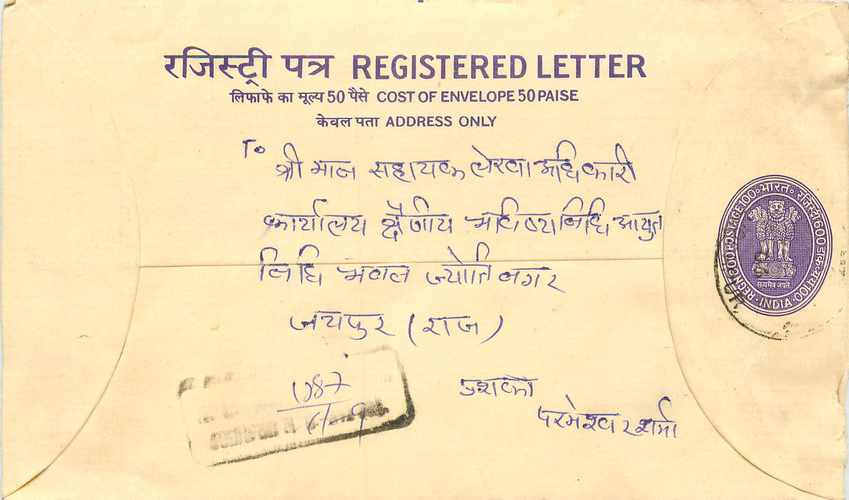 रजिस्ट्री पत्र REGISTERED LETTER
लिफाफे का मूल्य 50 पैसे COST OF ENVELOPE 50 PAISE
केवल पता ADDRESS ONLY
To
श्री मान सहायक लेखा अधिकारी
कार्यालय क्षैत्रीय भविष्य निधि आयुक्त
निधि भवन ज्योति नगर
जयपुर (राज)
1087
परमेश्वर शर्मा
REGN 600 POSTAGE 100 भारत रजिस्ट्री 600 डाक-दर 100 INDIA
सत्यमेव जयते